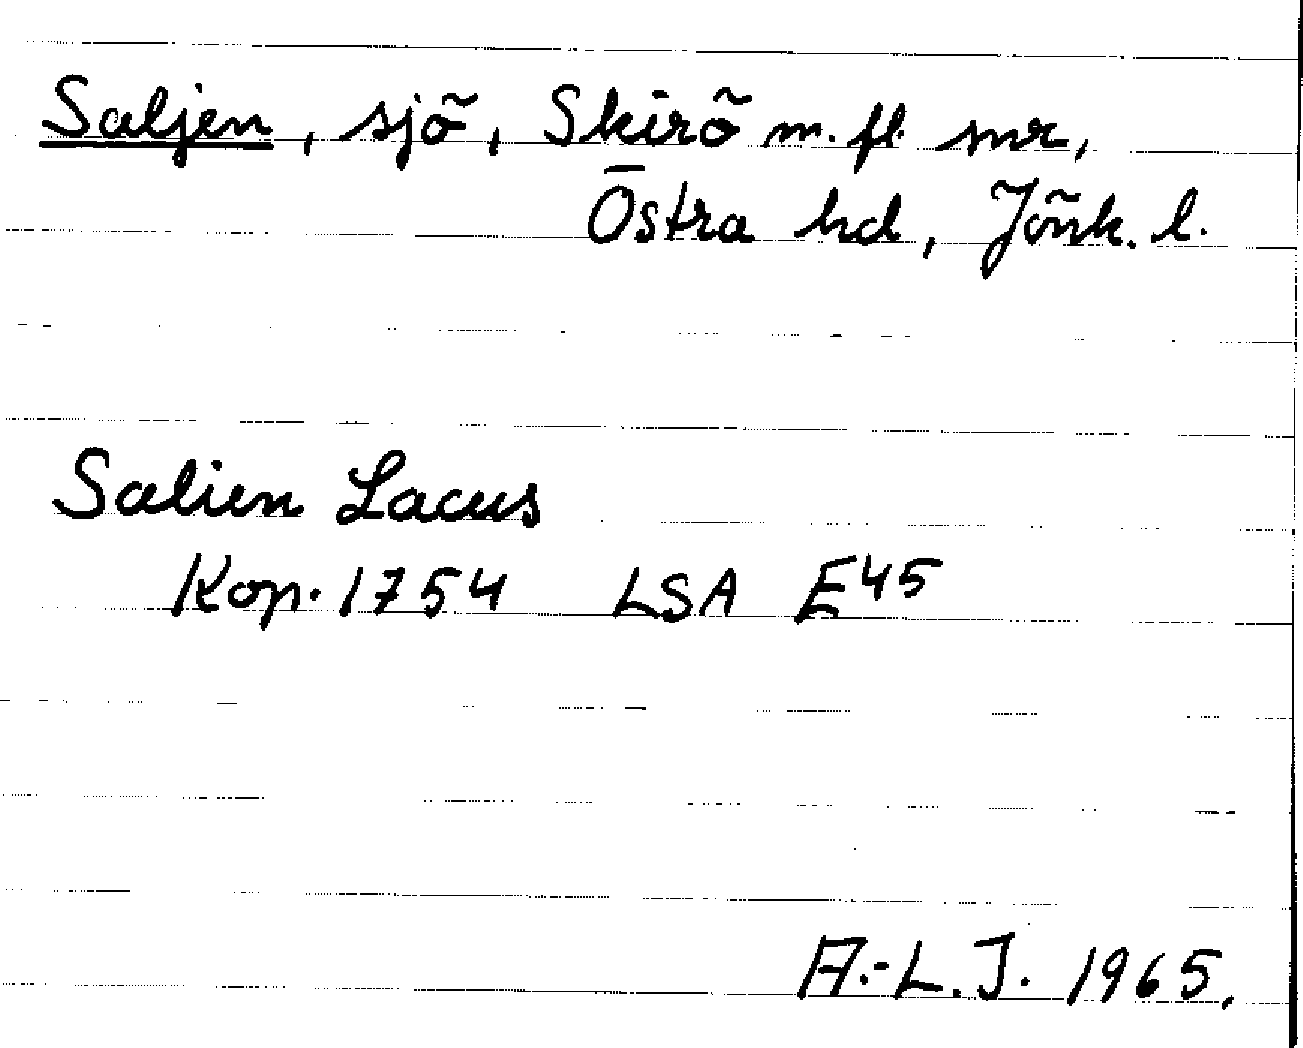 Saljen, sjö, Skirö m. fl. snr,
Östra hd, Jönk. l.
Salien Lacus
Kop. 1754 LSA E45
A.-L. J. 1965.